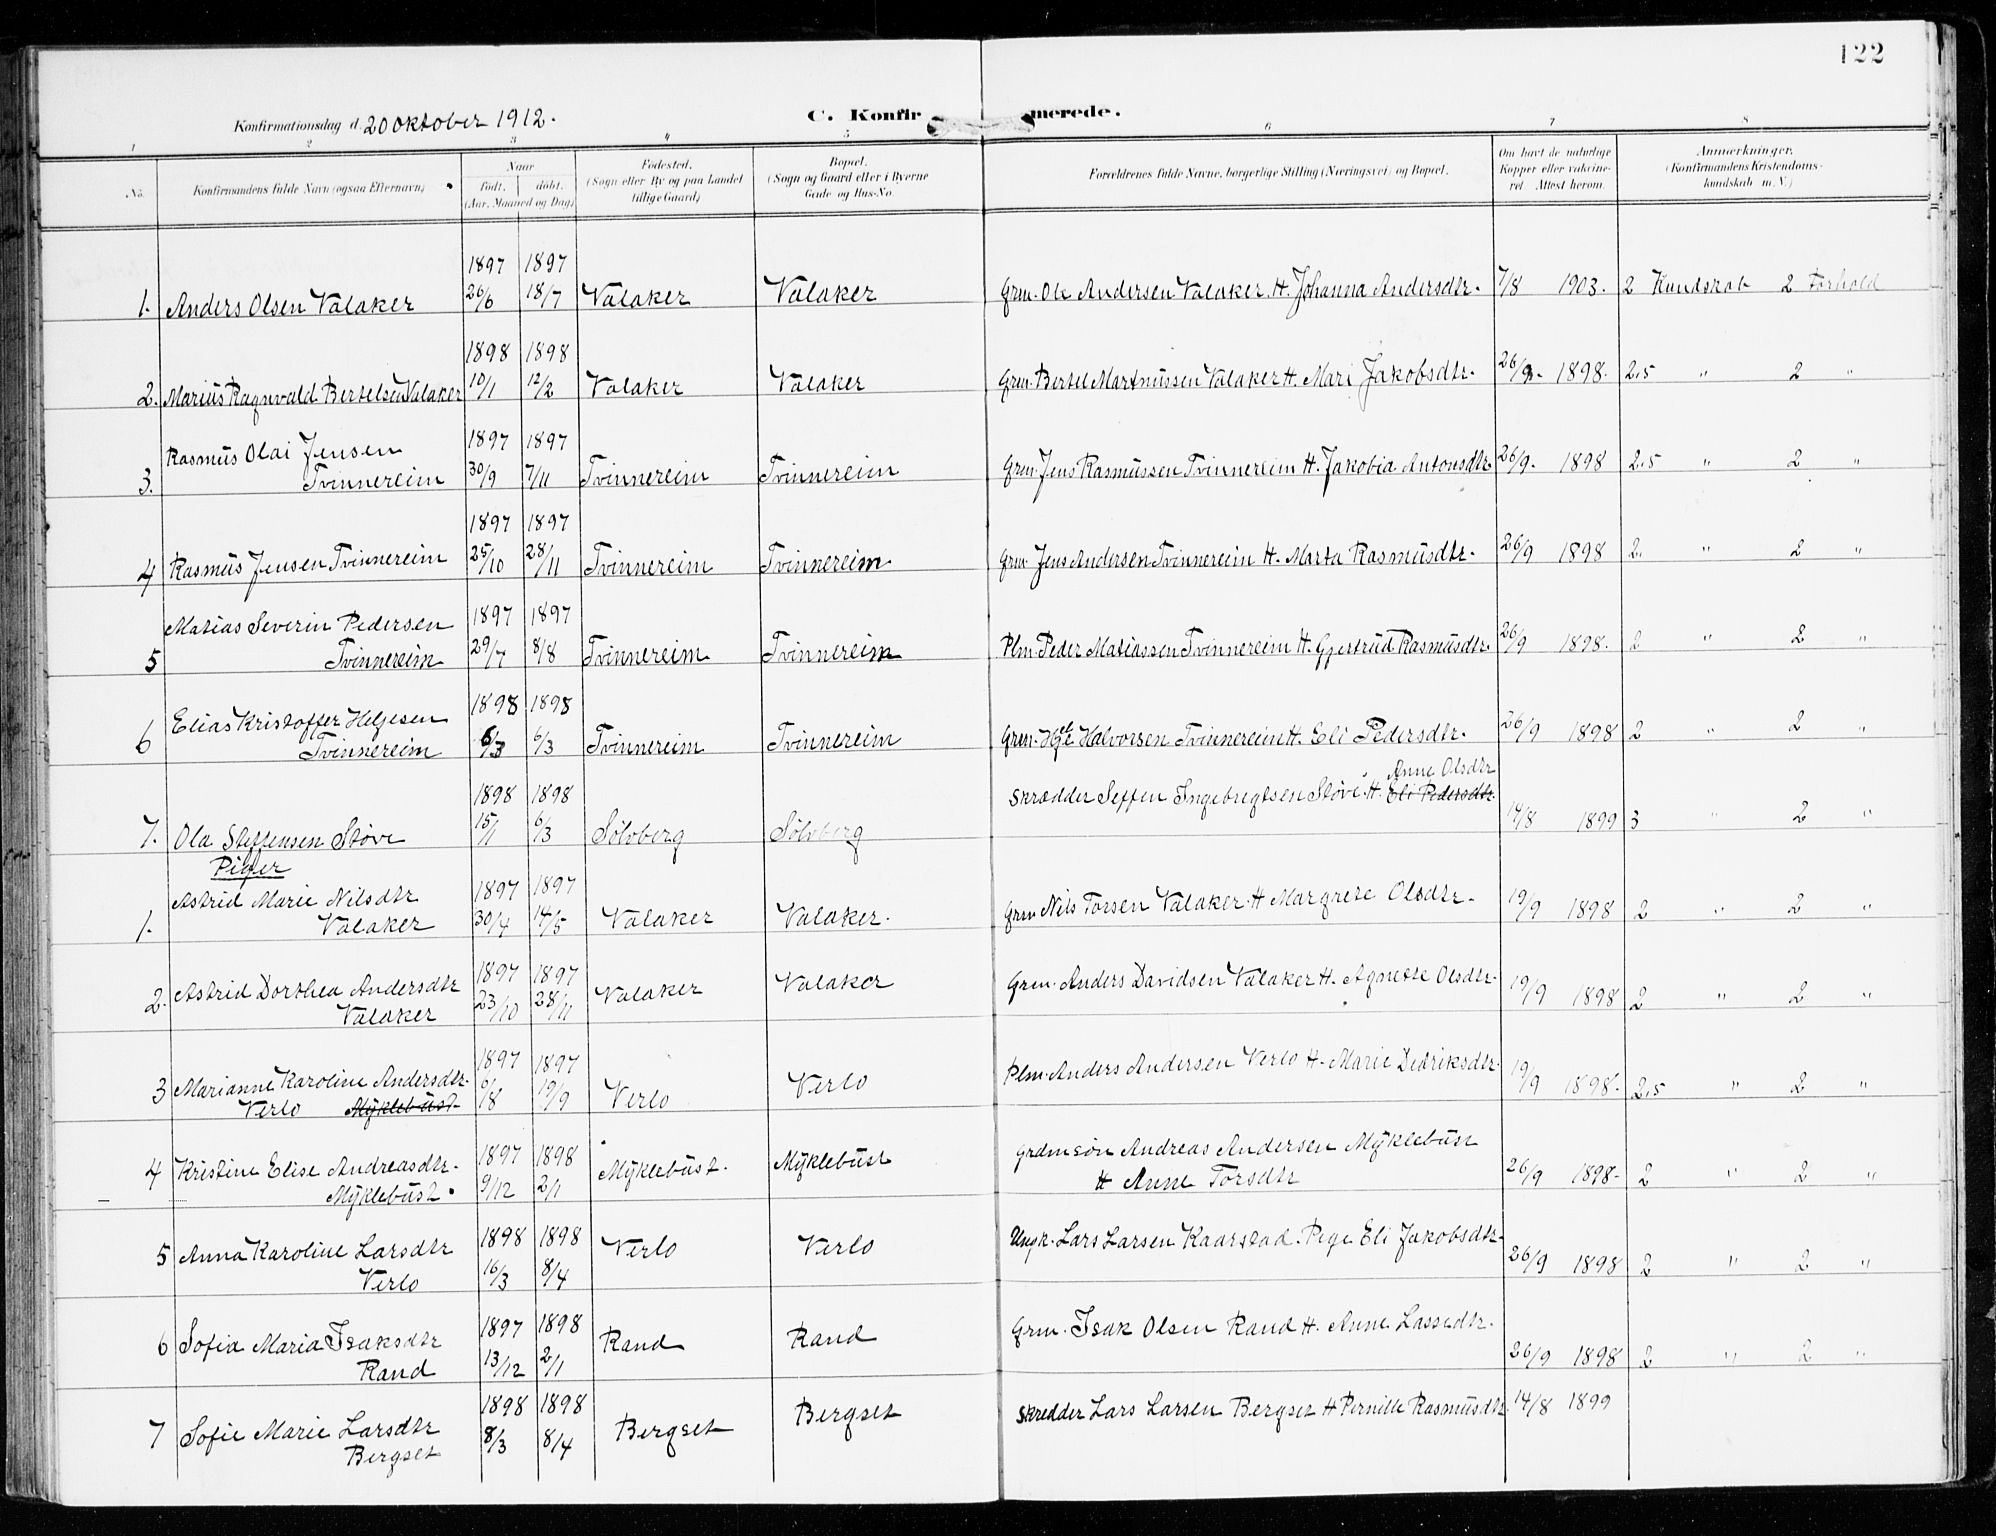 122
Konfirmationsdag d. 20 Oktober 1912. C. Konfirmerede.
1 2 3 " 5 6 7 8
No. Konfirmandens fulde Navn (ogsaa Efternavn) Naar født. døbt. (Aar, Maaned og Dag) Fødested. (Sogn eller By og paa Landet tillige Gaard) Bopæl. (Sogn og Gaard eller i Byerne Gade og Hus-No. Forældrenes fulde Navne, borgerlige Stilling (Næringsvei) og Bopæl. Om havt de naturlige Kopper eller vaksineret. Attest herom. Anmærkninger. (Konfirmandens Kristendomskundskab m. V.)
1897 1897
1. Anders Olsen Valaker 26/6 18/7 Valaker Valaker Grm. Ole Andersen Valaker. H. Johanna Andersdtr. 7/8 1903. 2 Kundskab 2 Forhold
1898 1898
2. Marius Ragnvald Bertelsen Valaker 10/1 12/2 Valaker Valaker Grm. Bertel Martinussen Valaker H. Mari Jakobsdtr. 26/9. 1898. 2.5 " 2 "
Rasmus Olai Jensen 1897 1897
3. Tvinnereim 30/9 7/11 Tvinnereim Tvinnereim Grm. Jens Rasmussen Tvinnereim H. Jakobia Antonsdtr 26/9. 1898 2.5 " 2 "
1897 1897
4 Rasmus Jensen Tvinnereim 25/10 28/11 Tvinnereim Tvinnereim Grm. Jens Andersen Tvinnereim H. Marta Rasmusdtr. 26/9 1898 2. " 2 "
Matias Severin Pedersen 1897 1897
5 Tvinnereim 29/7 8/8 Tvinnereim Tvinnereim Plm. Peder Matiassen Tvinnereim H. Gjertrud Rasmusdtr. 26/9 1898. 2 " 2 "
Elias Kristoffer Helgesen 1898 1898
6 Tvinnereim 6/3 6/3 Tvinnereim Tvinnereim Grm. Helge Halvorsen Tvinnereim H. Eli Pedersdtr. 26/9 1898 2 " 2 "
Anne Olsdtr
1898 1898 Skrædder Seffen Ingebregtsen Støve. H. Eli Pedersdtr.
7. Ola Steffensen Støve 15/1 6/3 Sölvberg Sölvberg 14/8 1899 3 " 2 "
Piger
Astrid Marie Nilsdtr 1897 1897
1. Valaker 30/4 14/5 Valaker Valaker. Grm Nils Torsen Valaker. H Margrete Olsdtr. 19/9 1898 2 " 2 "
1897 1897
2. Astrid Dorthea Andersdtr 23/10 28/11 Valaker Valaker Grm. Anders Davidsen Valaker H. Agnette Olsdtr. 19/9 1898 2 " 2 "
Valaker
1897 1897
3 Marianne Karoline Andersdtr. 6/8 19/9 Verlo Verlo Plm. Anders Andersen Verlo H. Marie Didriksdtr. 19/9 1898. 2.5 " 2 "
Verlo Myklebust
4 Kristine Elise Andreasdtr. 1897 1898 Myklebust. Myklebust Grdmsön Andreas Andersen Myklebust
Myklebust. 9/12 2/1 H Anne Torsdtr 26/9 1898. 2 " 2 "
5 Anna Karoline Larsdtr 1898 1898 Verlo Verlo Ungk. Lars Larsen Kaarstad. Pige Eli Jakobsdtr.
Verlo 16/3 8/4 26/9 1898 2 " 2 "
6 Sofia Maria Isaksdtr 1897 1898 Rand Rand Grm. Isak Olsen Rand H. Anne Lassedtr.
Rand 13/12 2/1 26/9 1898 2 " 2 "
7 Sofie Marie Larsdtr 1898 1898 Bergset Bergset Skredder Lars Larsen Bergset H Pernille Rasmusdtr. 14/8 1899
Bergset 8/3 8/4